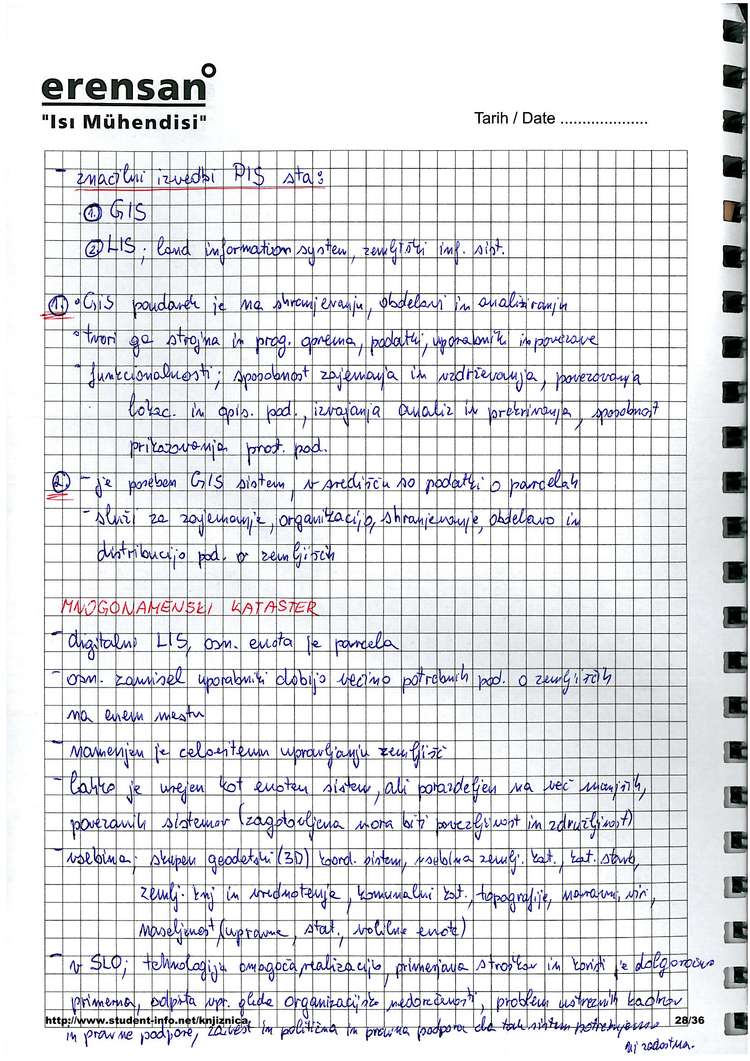 erensan
"Isı Mühendisi"
Tarih / Date ....................
- značilni izvedbi PIS sta:
1. GIS
2. LIS; land information system, zemljiški inf. sist.
1. • GIS poudarek je na shranjevanju, obdelavi in analiziranju
• tvori ga strojna in prog. oprema, podatki, uporabnik in povezave
• funkcionalnosti; sposobnost zajemanja in vzdrževanja, povezovanja
lokac. in opis. pod., izvajanja analiz in prekrivanja, sposobnost
prikazovanja prot. pod.
2. - je poseben GIS sistem, v središču so podatki o parcelah
- služi za zajemanje, organizacijo, shranjevanje, obdelavo in
distribucijo pod. o zemljiščih
MNOGONAMENSKI KATASTER
- digitalni LIS, osn. enota je parcela
- osn. zamisel uporabniki dobijo večino potrebnih pod. o zemljiščih
na enem mestu
- namenjen je celovitemu upravljanju zemljišč
- lahko je urejen kot enoten sistem, ali porazdeljen na več manjših,
povezanih sistemov (zagotovljena mora biti povezljivost in združljivost)
- vsebina; skupen geodetski (3D) koord. sistem, vsebina zemlj. kat., kat. stavb,
zemlj. knj in vrednotenje, komunalni kat., topografije, naravni viri,
naseljenost (upravne, stat., volilne enote)
- v SLO; tehnologija omogoča realizacijo, primerjava stroškov in koristi je dolgoročno
primerna, odprta vpr. glede organizacijske nedorečenosti, problem ustreznih kadrov
http://www.student-info.net/knjiznica
28/36
in pravne podpore, zavest in politična in pravna podpora da tak sistem potrebujemo
ni zadostna.